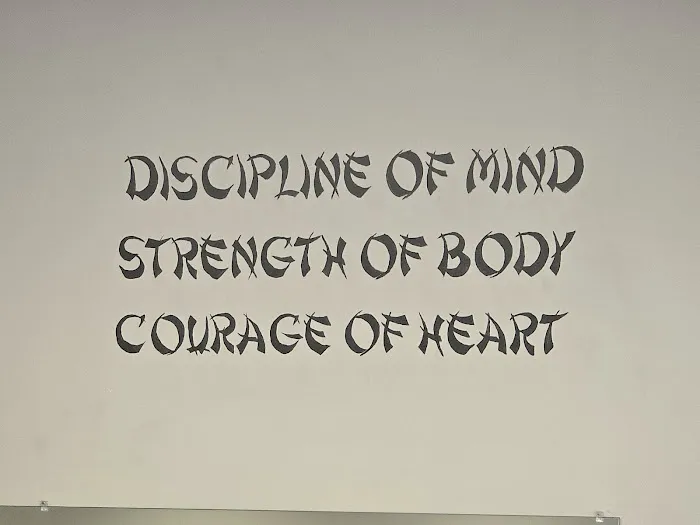 DISCIPLINE OF MIND
STRENGTH OF BODY
COURAGE OF HEART